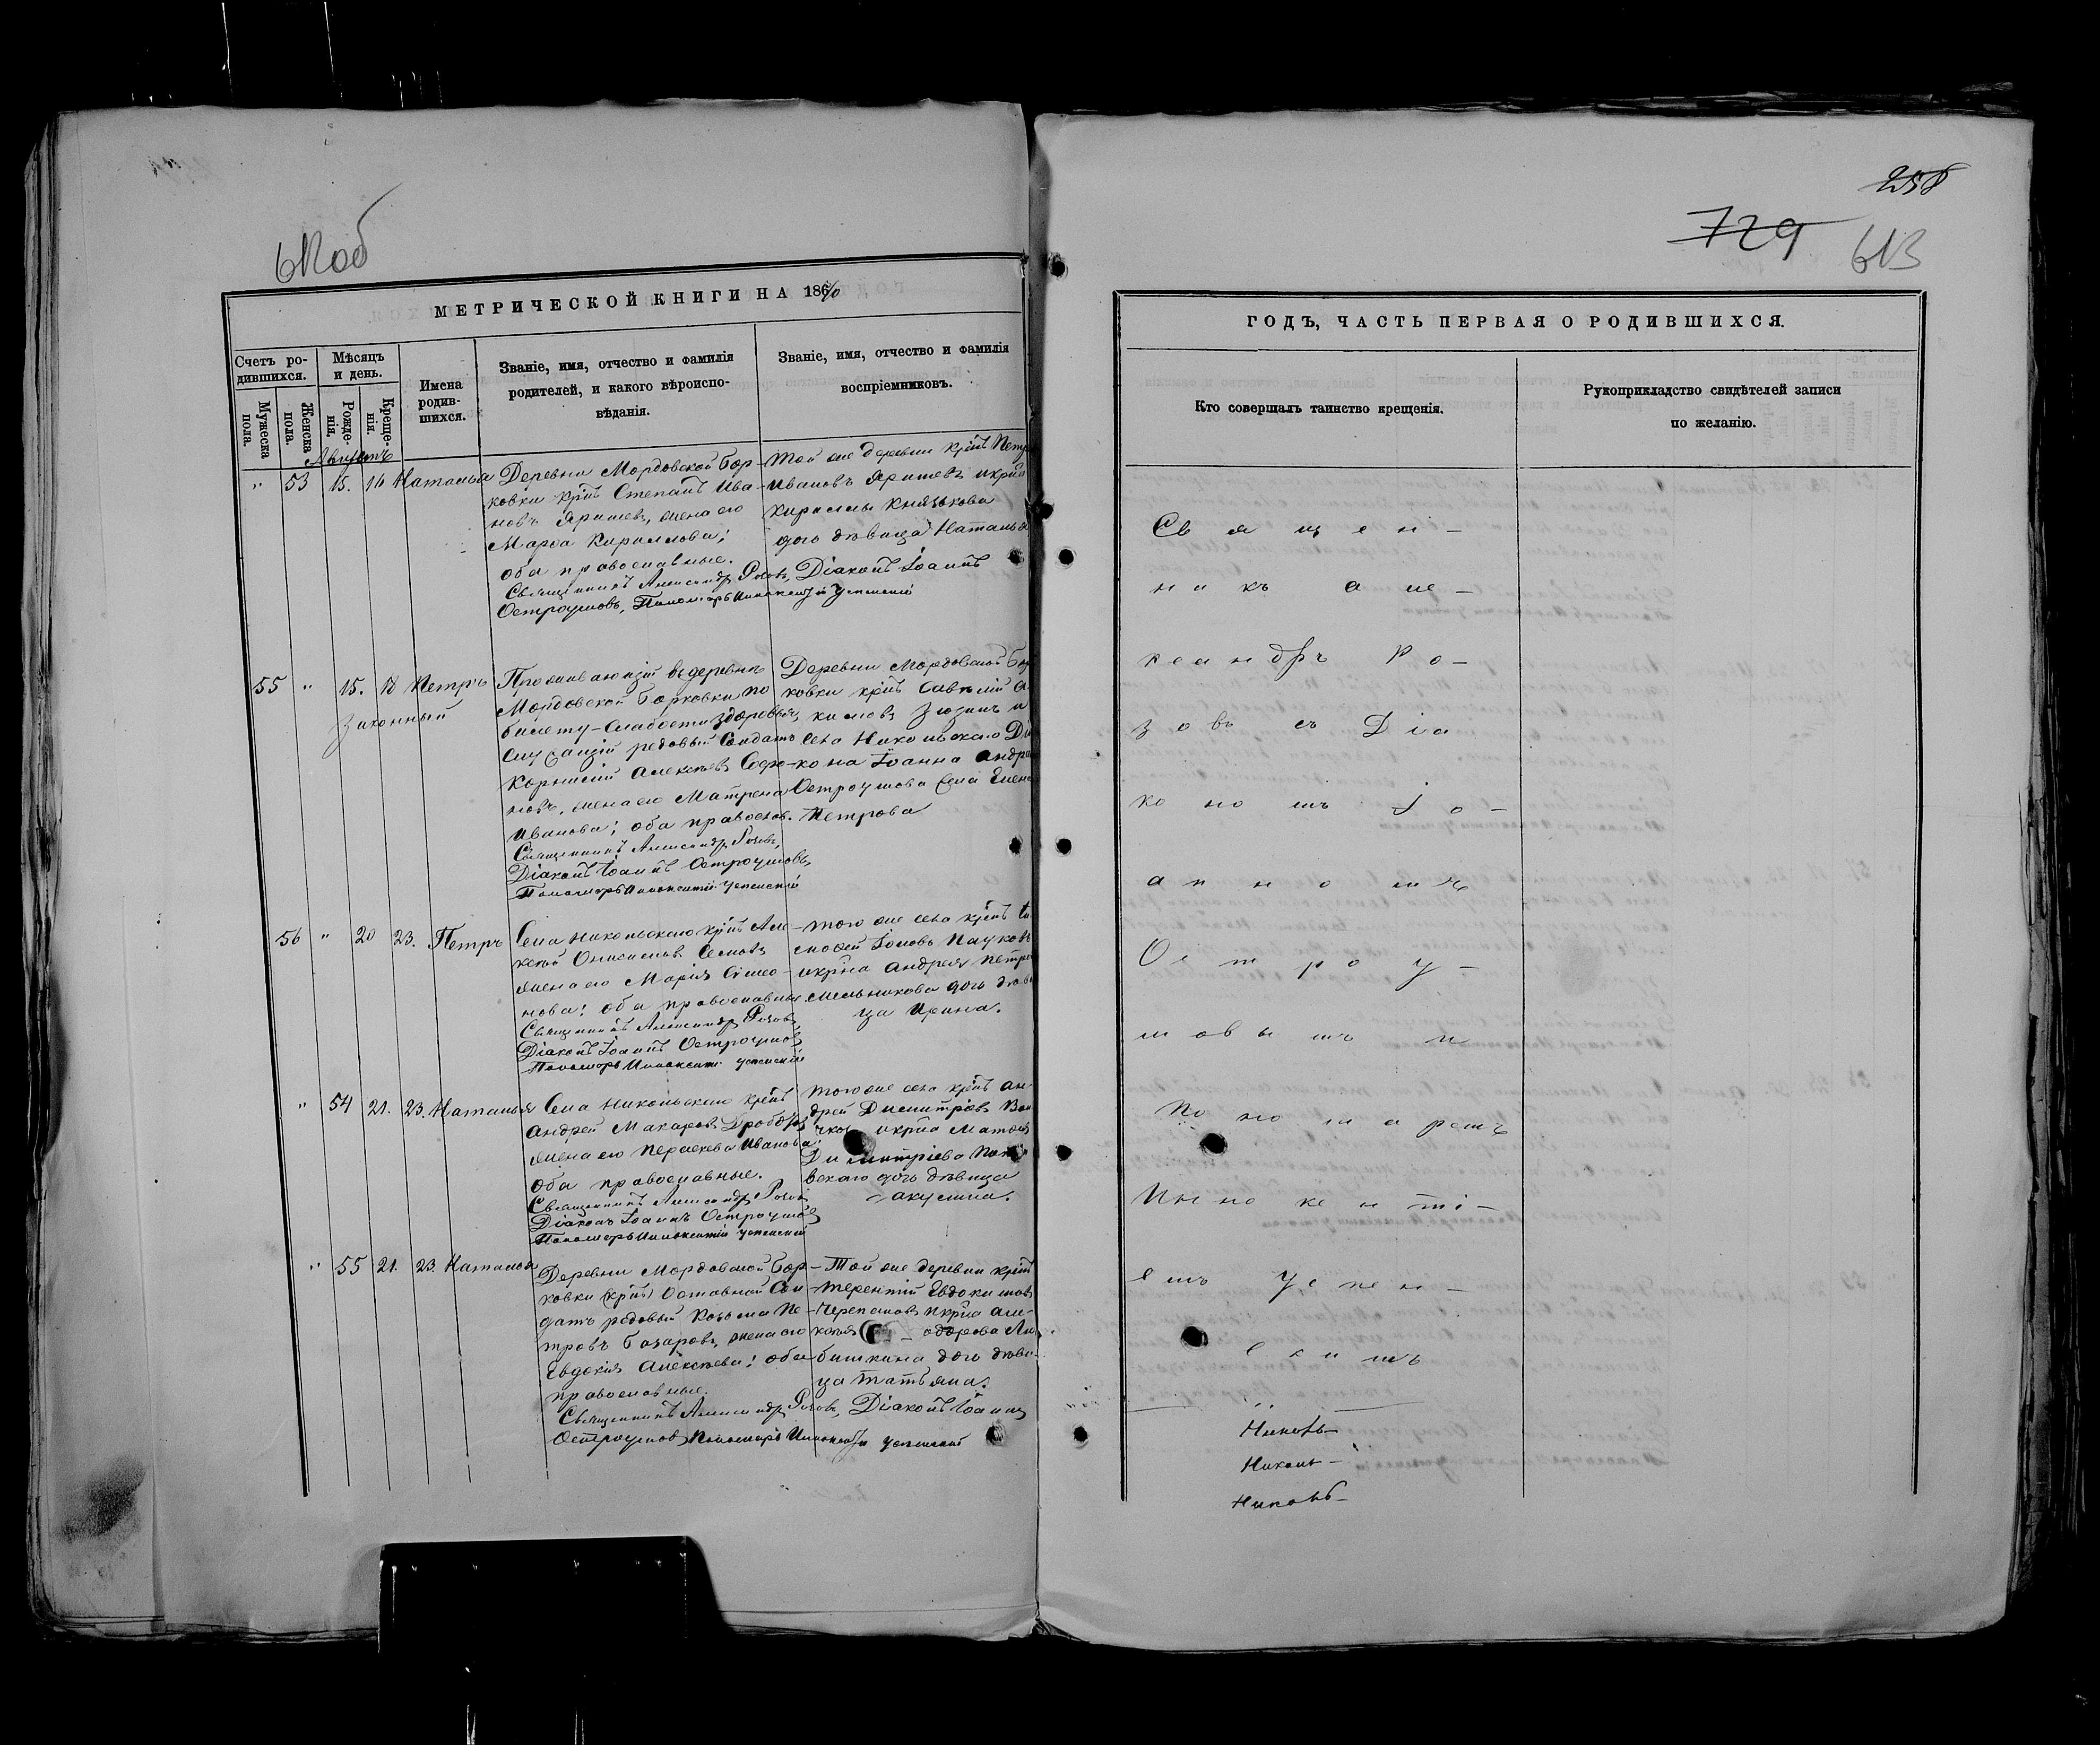 258
729
613
612 об
МЕТРИЧЕСКОЙ КНИГИ НА 1860
Счетъ ро-
дившихся.
Мужеска
пола.
Женска
пола.
Мѣсяцъ
и день.
Рожде-
нія.
Креще-
нія.
Имена
родив-
шихся.
Званіе, имя, отчество и фамилія
родителей, и какого вѣроиспо-
вѣданія.
Званіе, имя, отчество и фамилія
воспріемниковъ.
Августъ
" 53 15. 16 Наталья
Деревни Мордовской Бор-
ковки кр͠нъ Степанъ Ива-
новъ Яришевъ, жена его
Марѳа Кириллова;
оба православные.
Священникъ Александръ Розовъ, Діаконъ Іоаннъ
Остроумовъ, Пономарь Иннокентій Успенскій
Той же деревни кр͠нъ Петръ
Ивановъ Яришевъ и кр͠на
Кириллы Князькова
дочь дѣвица Наталья
55 " 15. 18 Петръ
законный
Проживающій въ деревнѣ
Мордовской Борковки по
билету слабости здоровья,
служащій рядовый Солдатъ
Корнилій Алексѣевъ Софро-
новъ, жена его Матрена
Иванова; оба правослов.
Священникъ Александръ Розовъ,
Діаконъ Іоаннъ Остроумовъ,
Пономарь Иннокентій Успенскій
Деревни Мордовской Бор
ковки кр͠нъ
кимовъ Зюзинъ и
Села Никольскаго Ді
кона Іоанна Андре
Остроумова Елена
Петрова
56 " 20 23. Петръ
Села Никольскаго кр͠нъ Але
ксѣй Онисимовъ Семовъ
жена его Марія Симео-
нова; оба православные
Священникъ Александръ Розовъ,
Діаконъ Іоаннъ Остроумовъ
Пономарь Иннокентій Успенскій
того же села кр͠нъ Ти
моѳей Іововъ Пауковъ
и кр͠на Андрея Петро
Мельникова дочь дѣви
ца Ирина.
" 54 21. 23. Наталья
Села Никольскаго кр͠нъ
Андрей Макаровъ
жена его Параскева Иванова;
оба православные.
Священникъ Александръ Розовъ
Діаконъ Іоаннъ Остроумовъ
Пономарь Иннокентій Успенскій
того же села кр͠нъ Ан-
дрей Димитріевъ
и кр͠на Матвѣя
Димитріева
вскаго дочь дѣвица
Акулина.
" 55 21. 23. Наталья
Деревни Мордовской Бор-
ковки (кр͠нъ) Отставной Сол
датъ рядовый Козьма Пе-
тровъ Базаровъ, жена его
Евдокія Алексѣева; оба
православные.
Священникъ Александръ Розовъ, Діаконъ Іоаннъ
Остроумовъ, Пономарь Иннокентій Успенскій
Той же деревни кр͠нъ
Терентій Евдокимовъ
Черепановъ и кр͠на Але-
одорова Лю
бишкина дочь дѣви-
ца Татьяна.
ГОДЪ, ЧАСТЬ ПЕРВАЯ О РОДИВШИХСЯ.
Кто совершалъ таинство крещенія.
Рукоприкладство свидѣтелей записи
по желанію.
Священ-
никъ Але-
ксандръ Ро-
зовъ съ Діа
кономъ Іо-
анномъ
Остроу-
мовымъ и
Пономаремъ
Иннокенті-
емъ Успен-
скимъ
Николь-
Николь-
Николь-